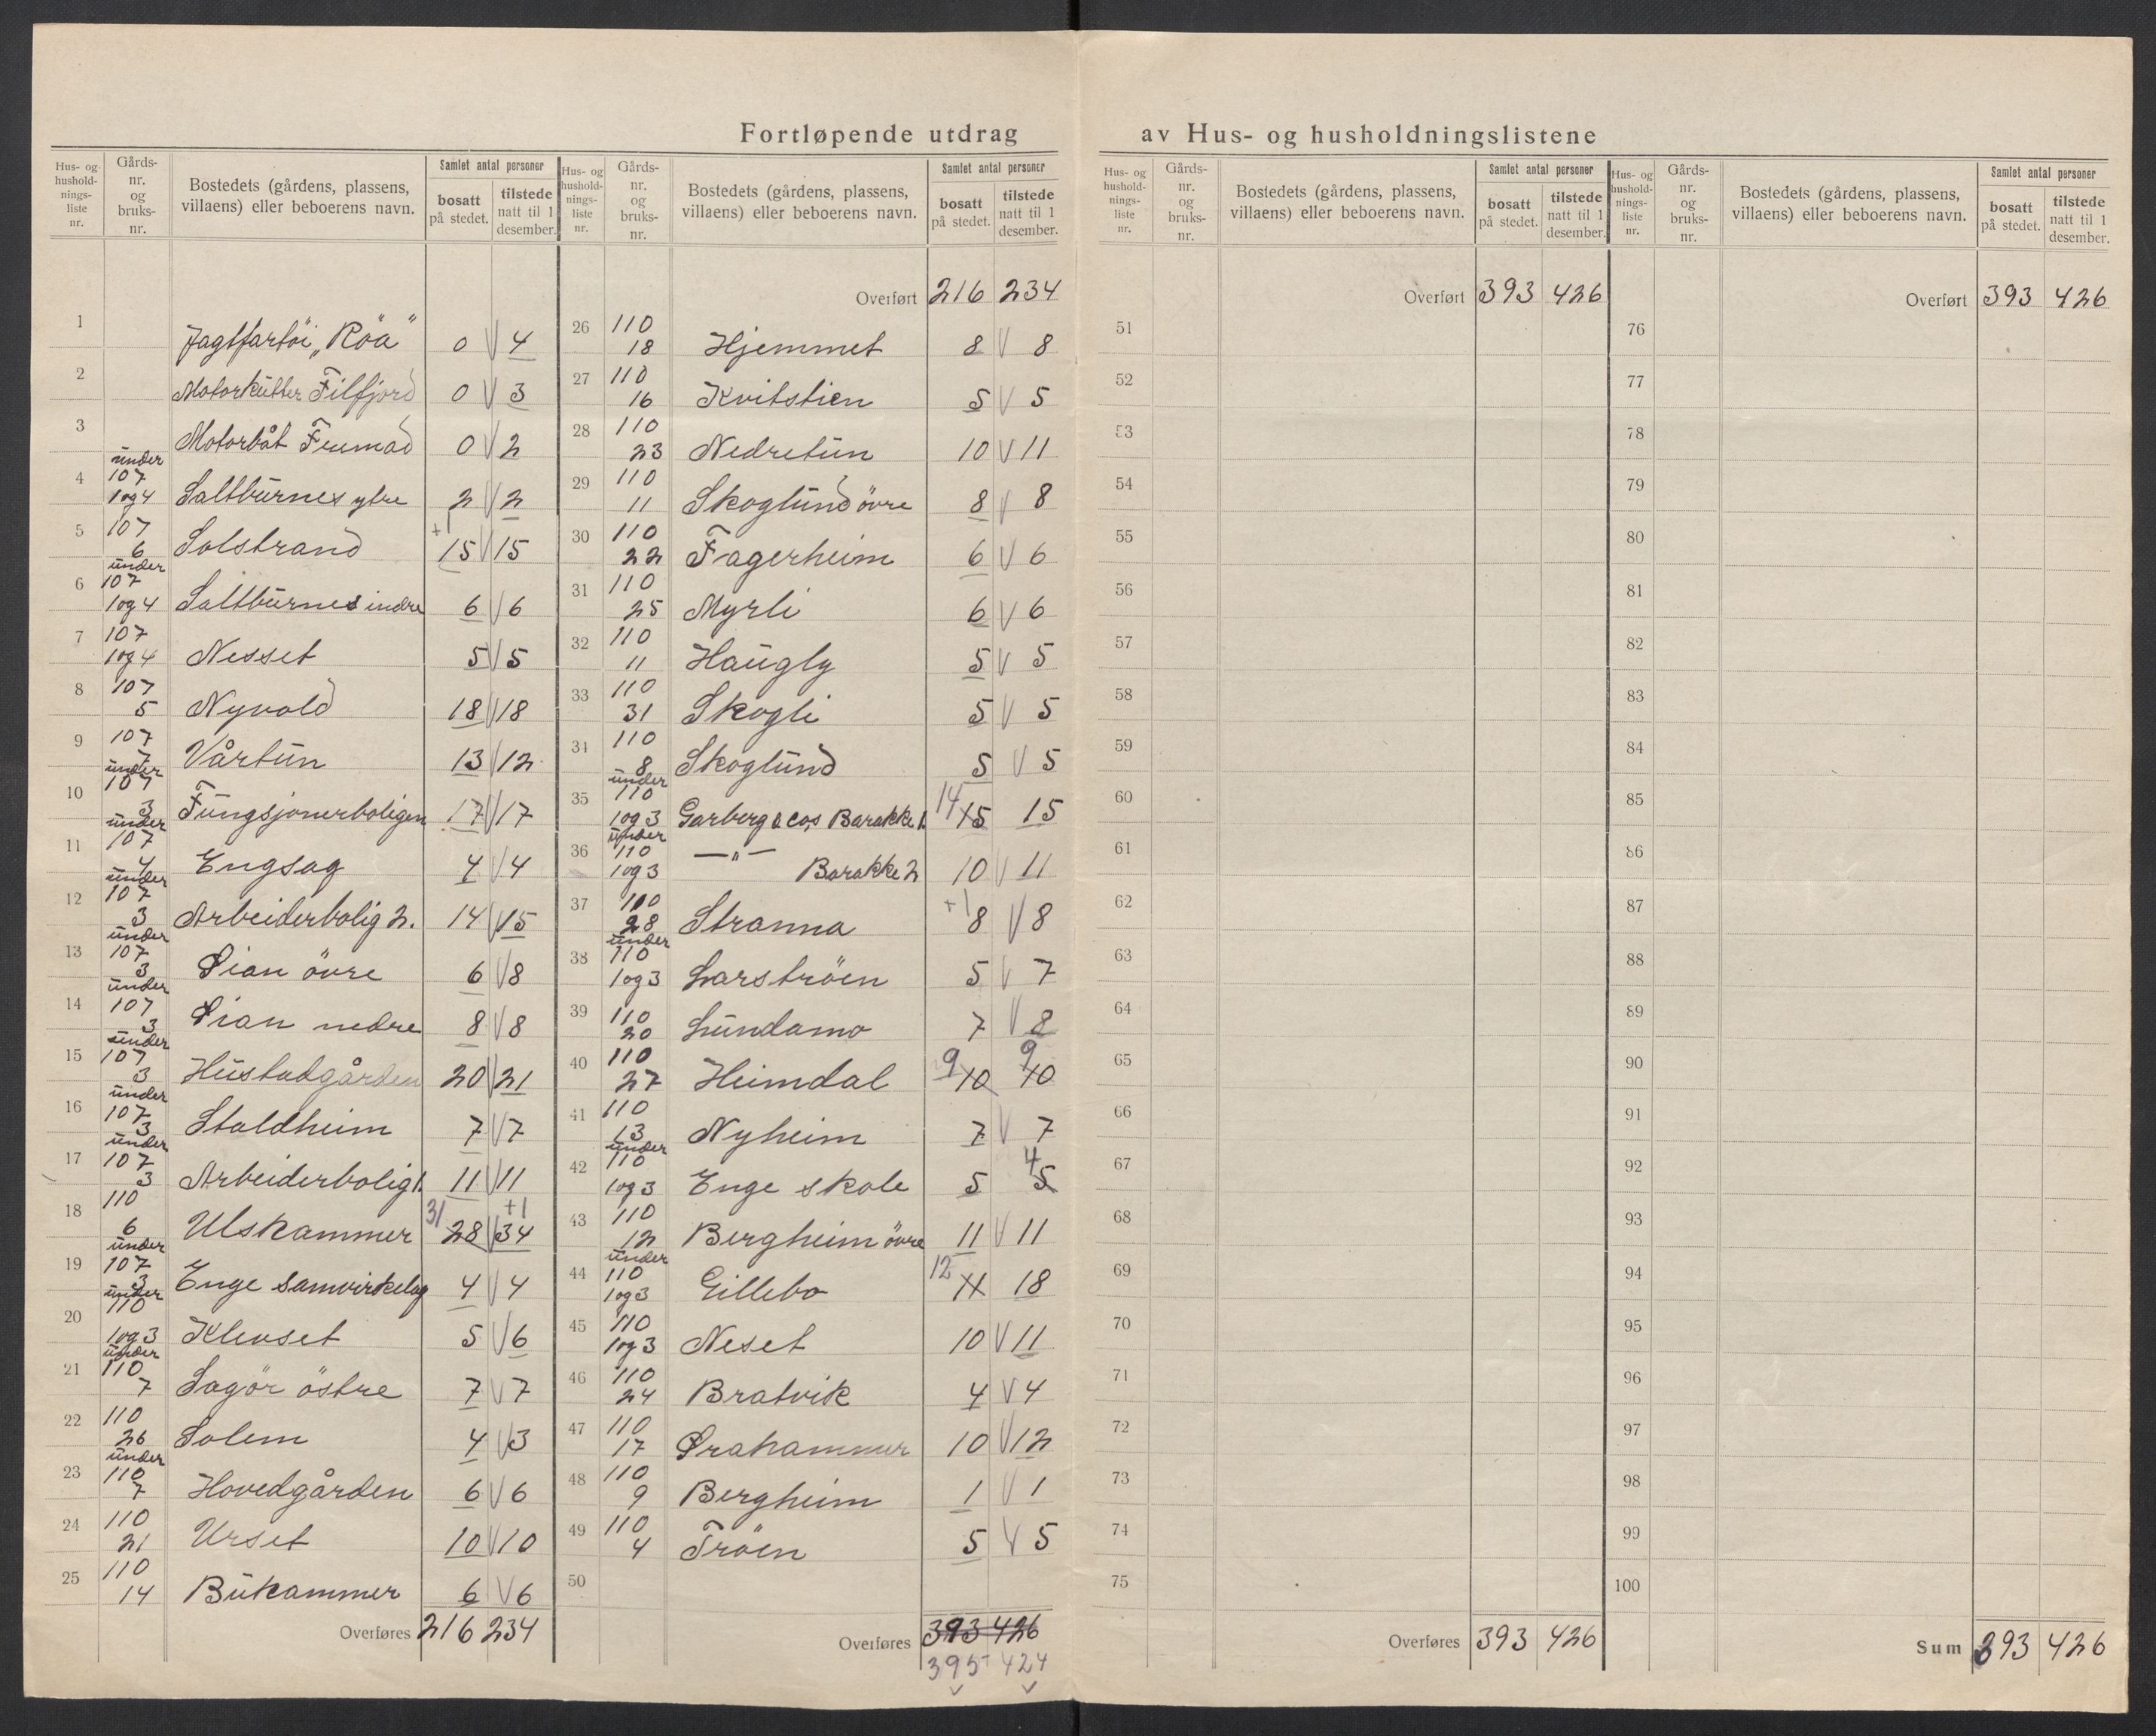 Fortløpende utdrag av Hus- og husholdningslistene
Hus- og husholdnings-liste nr. Gårds-nr. og bruks-nr. Bostedets (gårdens, plassens, villaens) eller beboerens navn. Samlet antal personer bosatt på stedet. tilstede natt til 1 desember.
1 Jagtfartöi „Röa" 0 4
2 Motorkutter Filfjord 0 3
3 Motorbåt Fremad 0 2
4 under 107 1og4 Saltburnes ytre 2 2
5 107 6 Solstrand +1 15 15
6 under 107 1og4 Saltburnes indre 6 6
7 107 1og4 Nesset 5 5
8 107 5 Nyvold 18 18
9 107 7 Vårtun 13 12
10 under 107 3 Fungsjonerboligen 17 17
11 under 107 4 Engsag 4 4
12 under 107 3 Arbeiderbolig 2. 14 15
13 under 107 3 Lian övre 6 8
14 under 107 3 Lian nedre 8 8
15 under 107 3 Hustadgården 20 21
16 under 107 3 Staldheim 7 7
17 under 107 3 Arbeiderbolig 1. 11 11
18 110 6 Ulskammer 31 28 +1 34
19 under 107 3 Enge Samvirkelag 4 4
20 under 110 1og3 Klevset 5 6
21 under 110 7 Sagör östre 7 7
22 110 26 Solem 4 3
23 under 110 7 Hovedgården 6 6
24 110 21 Urset 10 10
25 110 14 Bukammer 6 6
Overføres 216 234
Hus- og husholdnings-liste nr. Gårds-nr. og bruks-nr. Bostedets (gårdens, plassens, villaens) eller beboerens navn. Samlet antal personer bosatt på stedet. tilstede natt til 1 desember.
Overført 216 234
26 110 18 Hjemmet 8 8
27 110 16 Kvitstien 5 5
28 110 23 Nedretun 10 11
29 110 11 Skoglund övre 8 8
30 110 22 Fagerheim 6 6
31 110 25 Myrli 6 6
32 110 11 Haugly 5 5
33 110 31 Skogli 5 5
34 110 8 Skoglund 5 5
35 under 110 1og3 Garberg & Cos Barakke 1. 14 15 15
36 under 110 1og3 —"— Barakke 2 10 11
37 110 28 Stranna +1 8 8
38 under 110 1og3 Larströen 5 7
39 110 20 Lundamo 7 8
40 110 27 Heimdal 9 10 9 10
41 110 13 Nyheim 7 7
42 under 110 1og3 Enge skole 5 4 5
43 110 12 Bergheim övre 11 11
44 under 110 1og3 Gillebo 12 11 18
45 110 1og3 Neset 10 11
46 110 24 Bratvik 4 4
47 110 17 10 12
48 110 9 Bergheim 1 1
49 110 4 Tröen 5 5
50
Overføres 393 426
395 424
Hus- og husholdnings-liste nr. Gårds-nr. og bruks-nr. Bostedets (gårdens, plassens, villaens) eller beboerens navn. Samlet antal personer bosatt på stedet. tilstede natt til 1 desember.
Overført 393 426
51
52
53
54
55
56
57
58
59
60
61
62
63
64
65
66
67
68
69
70
71
72
73
74
75
Overføres 393 426
Hus- og husholdnings-liste nr. Gårds-nr. og bruks-nr. Bostedets (gårdens, plassens, villaens) eller beboerens navn. Samlet antal personer bosatt på stedet. tilstede natt til 1 desember.
Overført 393 426
76
77
78
79
80
81
82
83
84
85
86
87
88
89
90
91
92
93
94
95
96
97
98
99
100
Sum 393 426